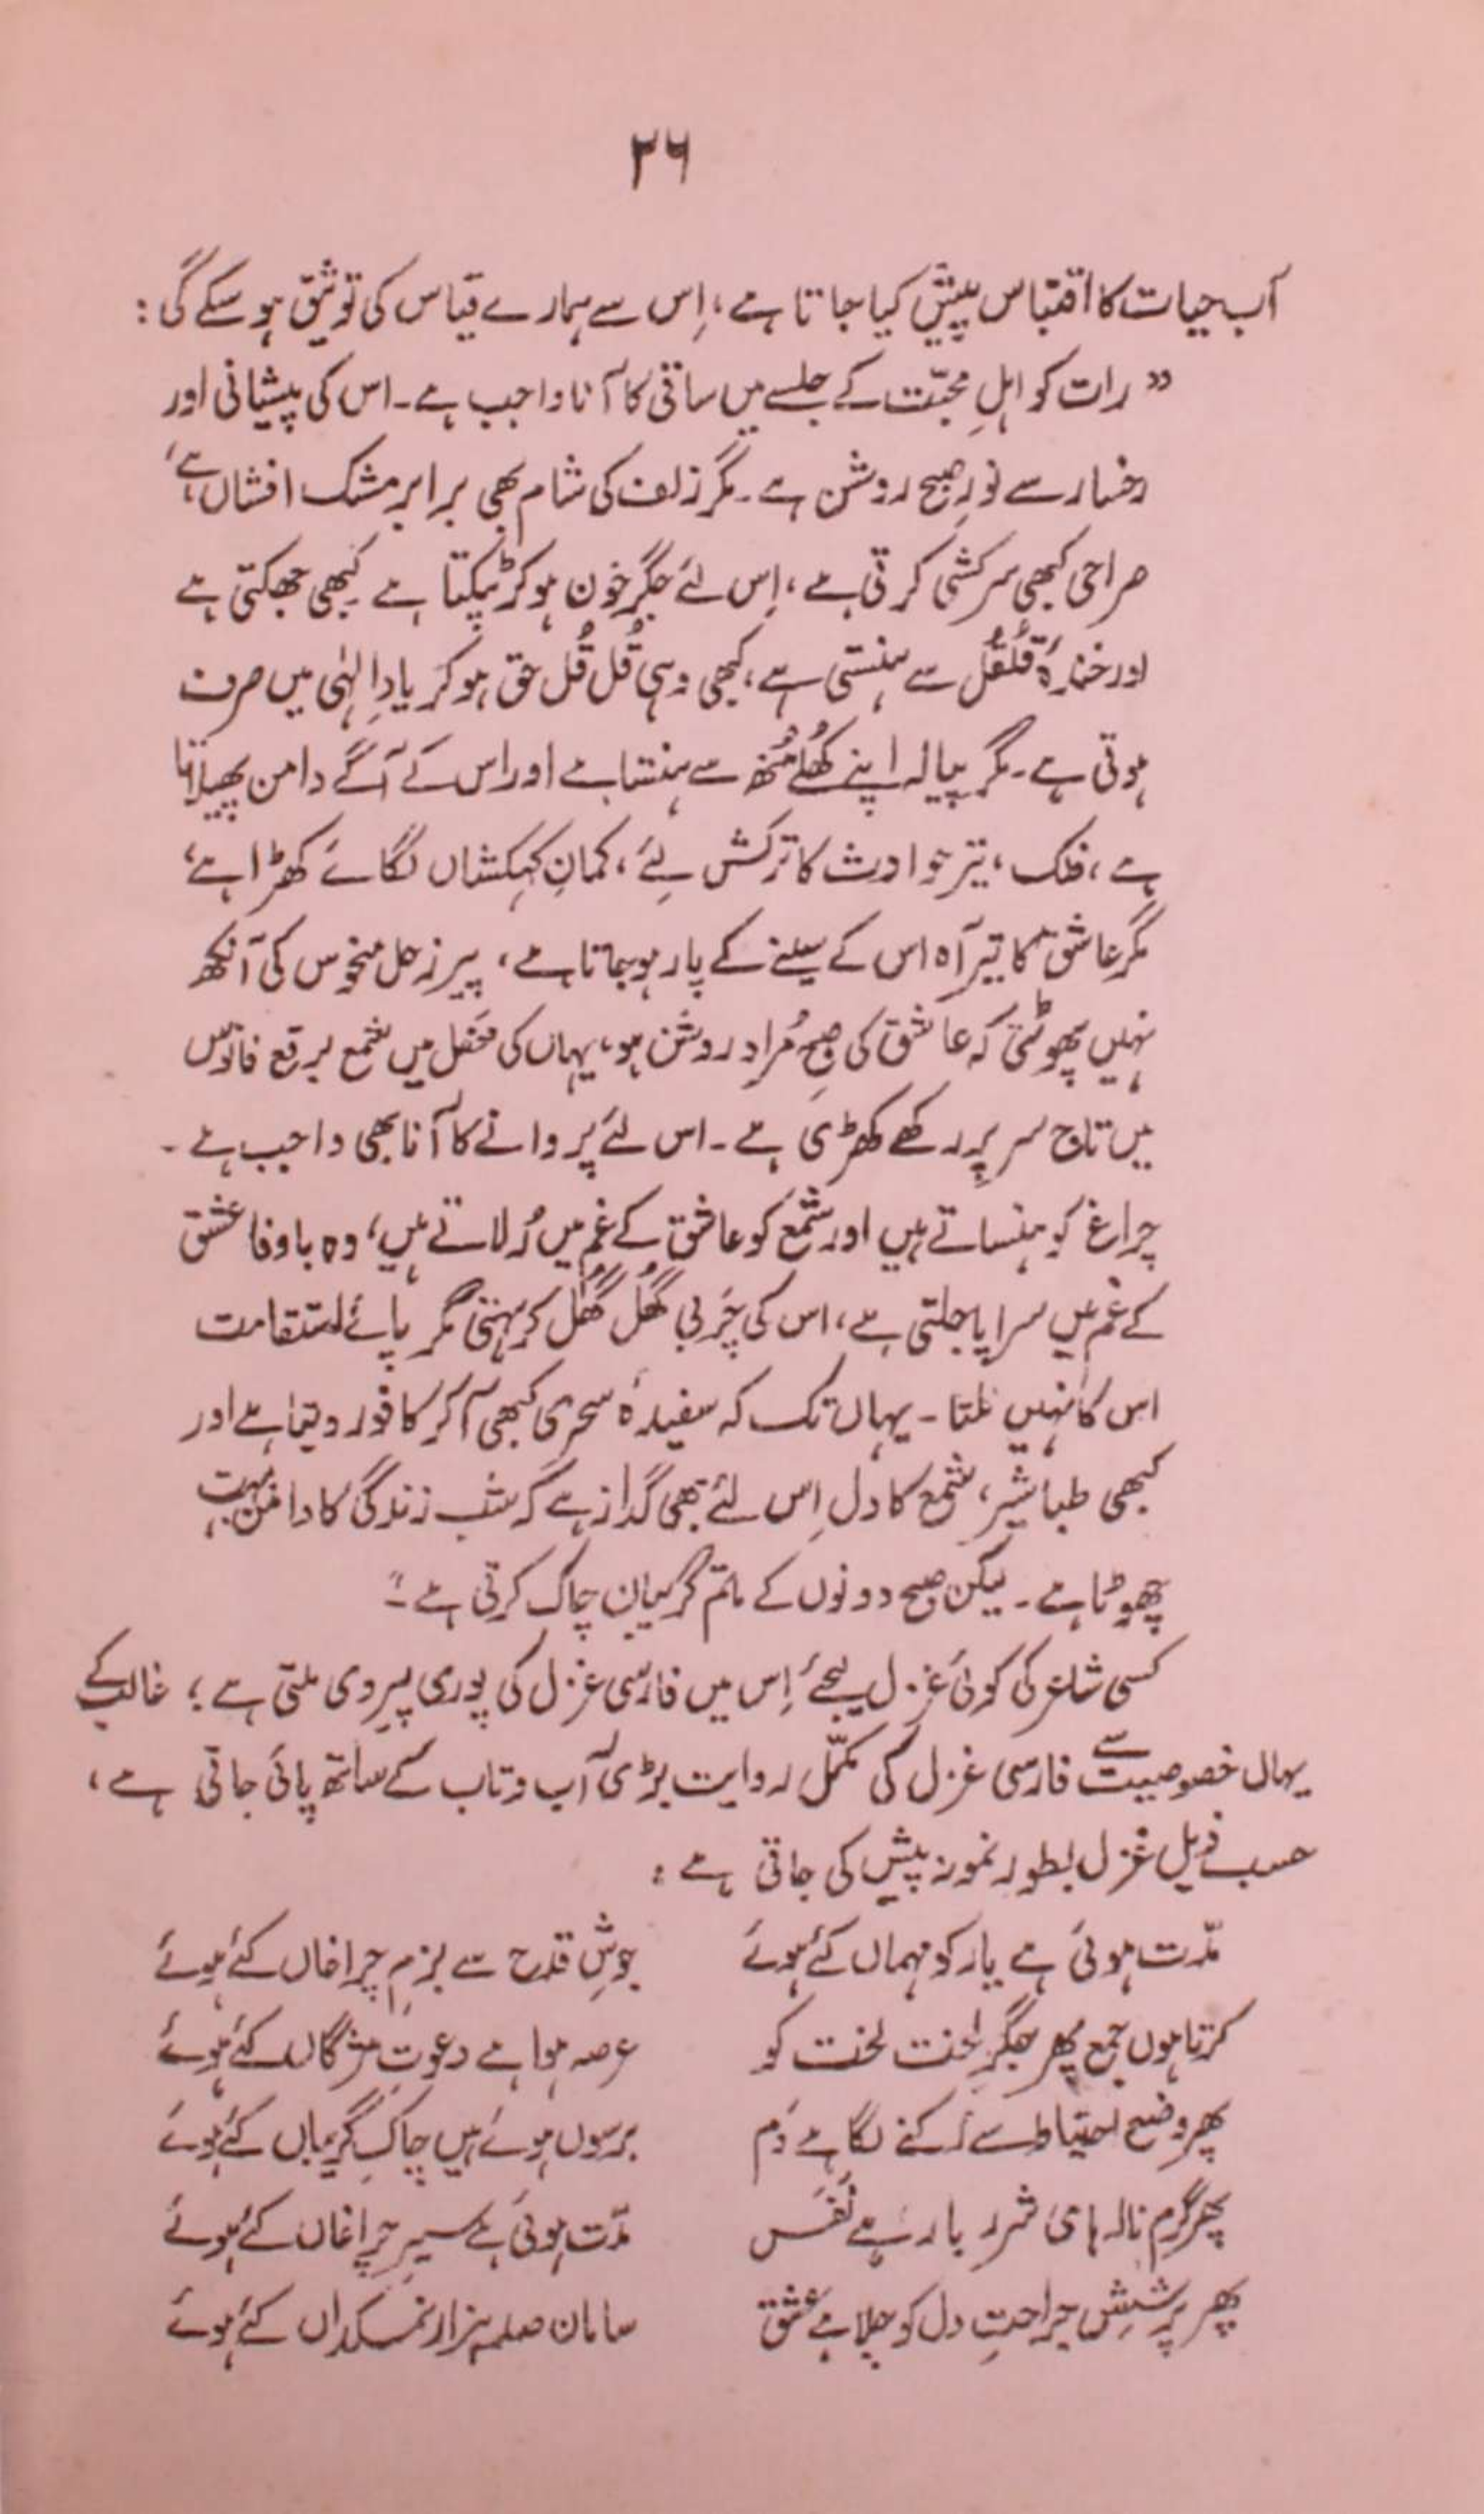 ۳۶
آب حیات کا اقتباس پیش کیا جاتا ہے، اِس سے ہمارے قیاس کی توثیق ہو سکے گی :
" رات کو اہلِ محبّت کے جلسے میں ساقی کا آنا واجب ہے۔ اس کی پیشانی اور
رخسار سے نورِ صبح روشن ہے۔ مگر زلف کی شام بھی برابر مشک افشاں ہے،
صراحی کبھی سرکشی کرتی ہے، اِس لئے جگر خون ہو کر ٹپکتا ہے کبھی جھکتی ہے
اور خندۂ قُلقُل سے ہنستی ہے، کبھی وہی قُل قُل حق ہو کر یادِ الٰہی میں صرف
ہوتی ہے۔ مگر پیالہ اپنے کھُلے مُنھ سے ہنستا ہے اور اس کے آگے دامن پھیلاتا
ہے، فلک، تیر حوادث کا ترکش لیئے، کمانِ کہکشاں لگائے کھڑا ہے،
مگر عاشق کا تیر آہ اس کے سینے کے پار ہو جاتا ہے، پیر زحل منحوس کی آنکھ
نہیں پھوٹتی کہ عاشق کی صبحِ مُراد روشن ہو، یہاں کی محفل میں شمع برقع فانوس
میں تاج سر پر رکھے کھڑی ہے۔ اس لئے پروانے کا آنا بھی واجب ہے۔
چراغ کو ہنساتے ہیں اور شمع کو عاشق کے غم میں رُلاتے ہیں، وہ باوفا عشق
کے غم میں سراپا جلتی ہے، اس کی چَربی گھُل گھُل کر بہتی مگر پائے استقامت
اس کا نہیں ٹلتا۔ یہاں تک کہ سفیدۂ سحری کبھی آ کر کافور دیتا ہے اور
کبھی طباشیر، شمع کا دل اِس لئے بھی گداز ہے کہ شب زندگی کا دامن بہت
چھوٹا ہے۔ لیکن صبح دونوں کے ماتم گریبان چاک کرتی ہے۔"
کسی شاعر کی کوئی غزل لیجئے اِس میں فارسی غزل کی پوری پیروی ملتی ہے؛ غالب کے
یہاں خصوصیت سے فارسی غزل کی مکمّل روایت بڑی آب و تاب کے ساتھ پائی جاتی ہے،
حسب ذیل غزل بطور نمونہ پیش کی جاتی ہے :
مدّت ہوئی ہے یار کو مہماں کئے ہوئے جوشِ قدح سے بزم چراغاں کئے ہوئے
کرتا ہوں جمع پھر جگرِ لخت لخت کو عرصہ ہوا ہے دعوتِ مژگاں کئے ہوئے
پھر وضعِ احتیاط سے رُکنے لگا ہے دَم برسوں ہوئے ہیں چاک گریباں کئے ہوئے
پھر گرم نالہ ہای شرر بار ہے نَفَس مدّت ہوئی ہے سیرِ چراغاں کئے ہوئے
پھر پُرسشِ جراحتِ دل کو چلا ہے عشق سامان صدہزار نمکداں کئے ہوئے